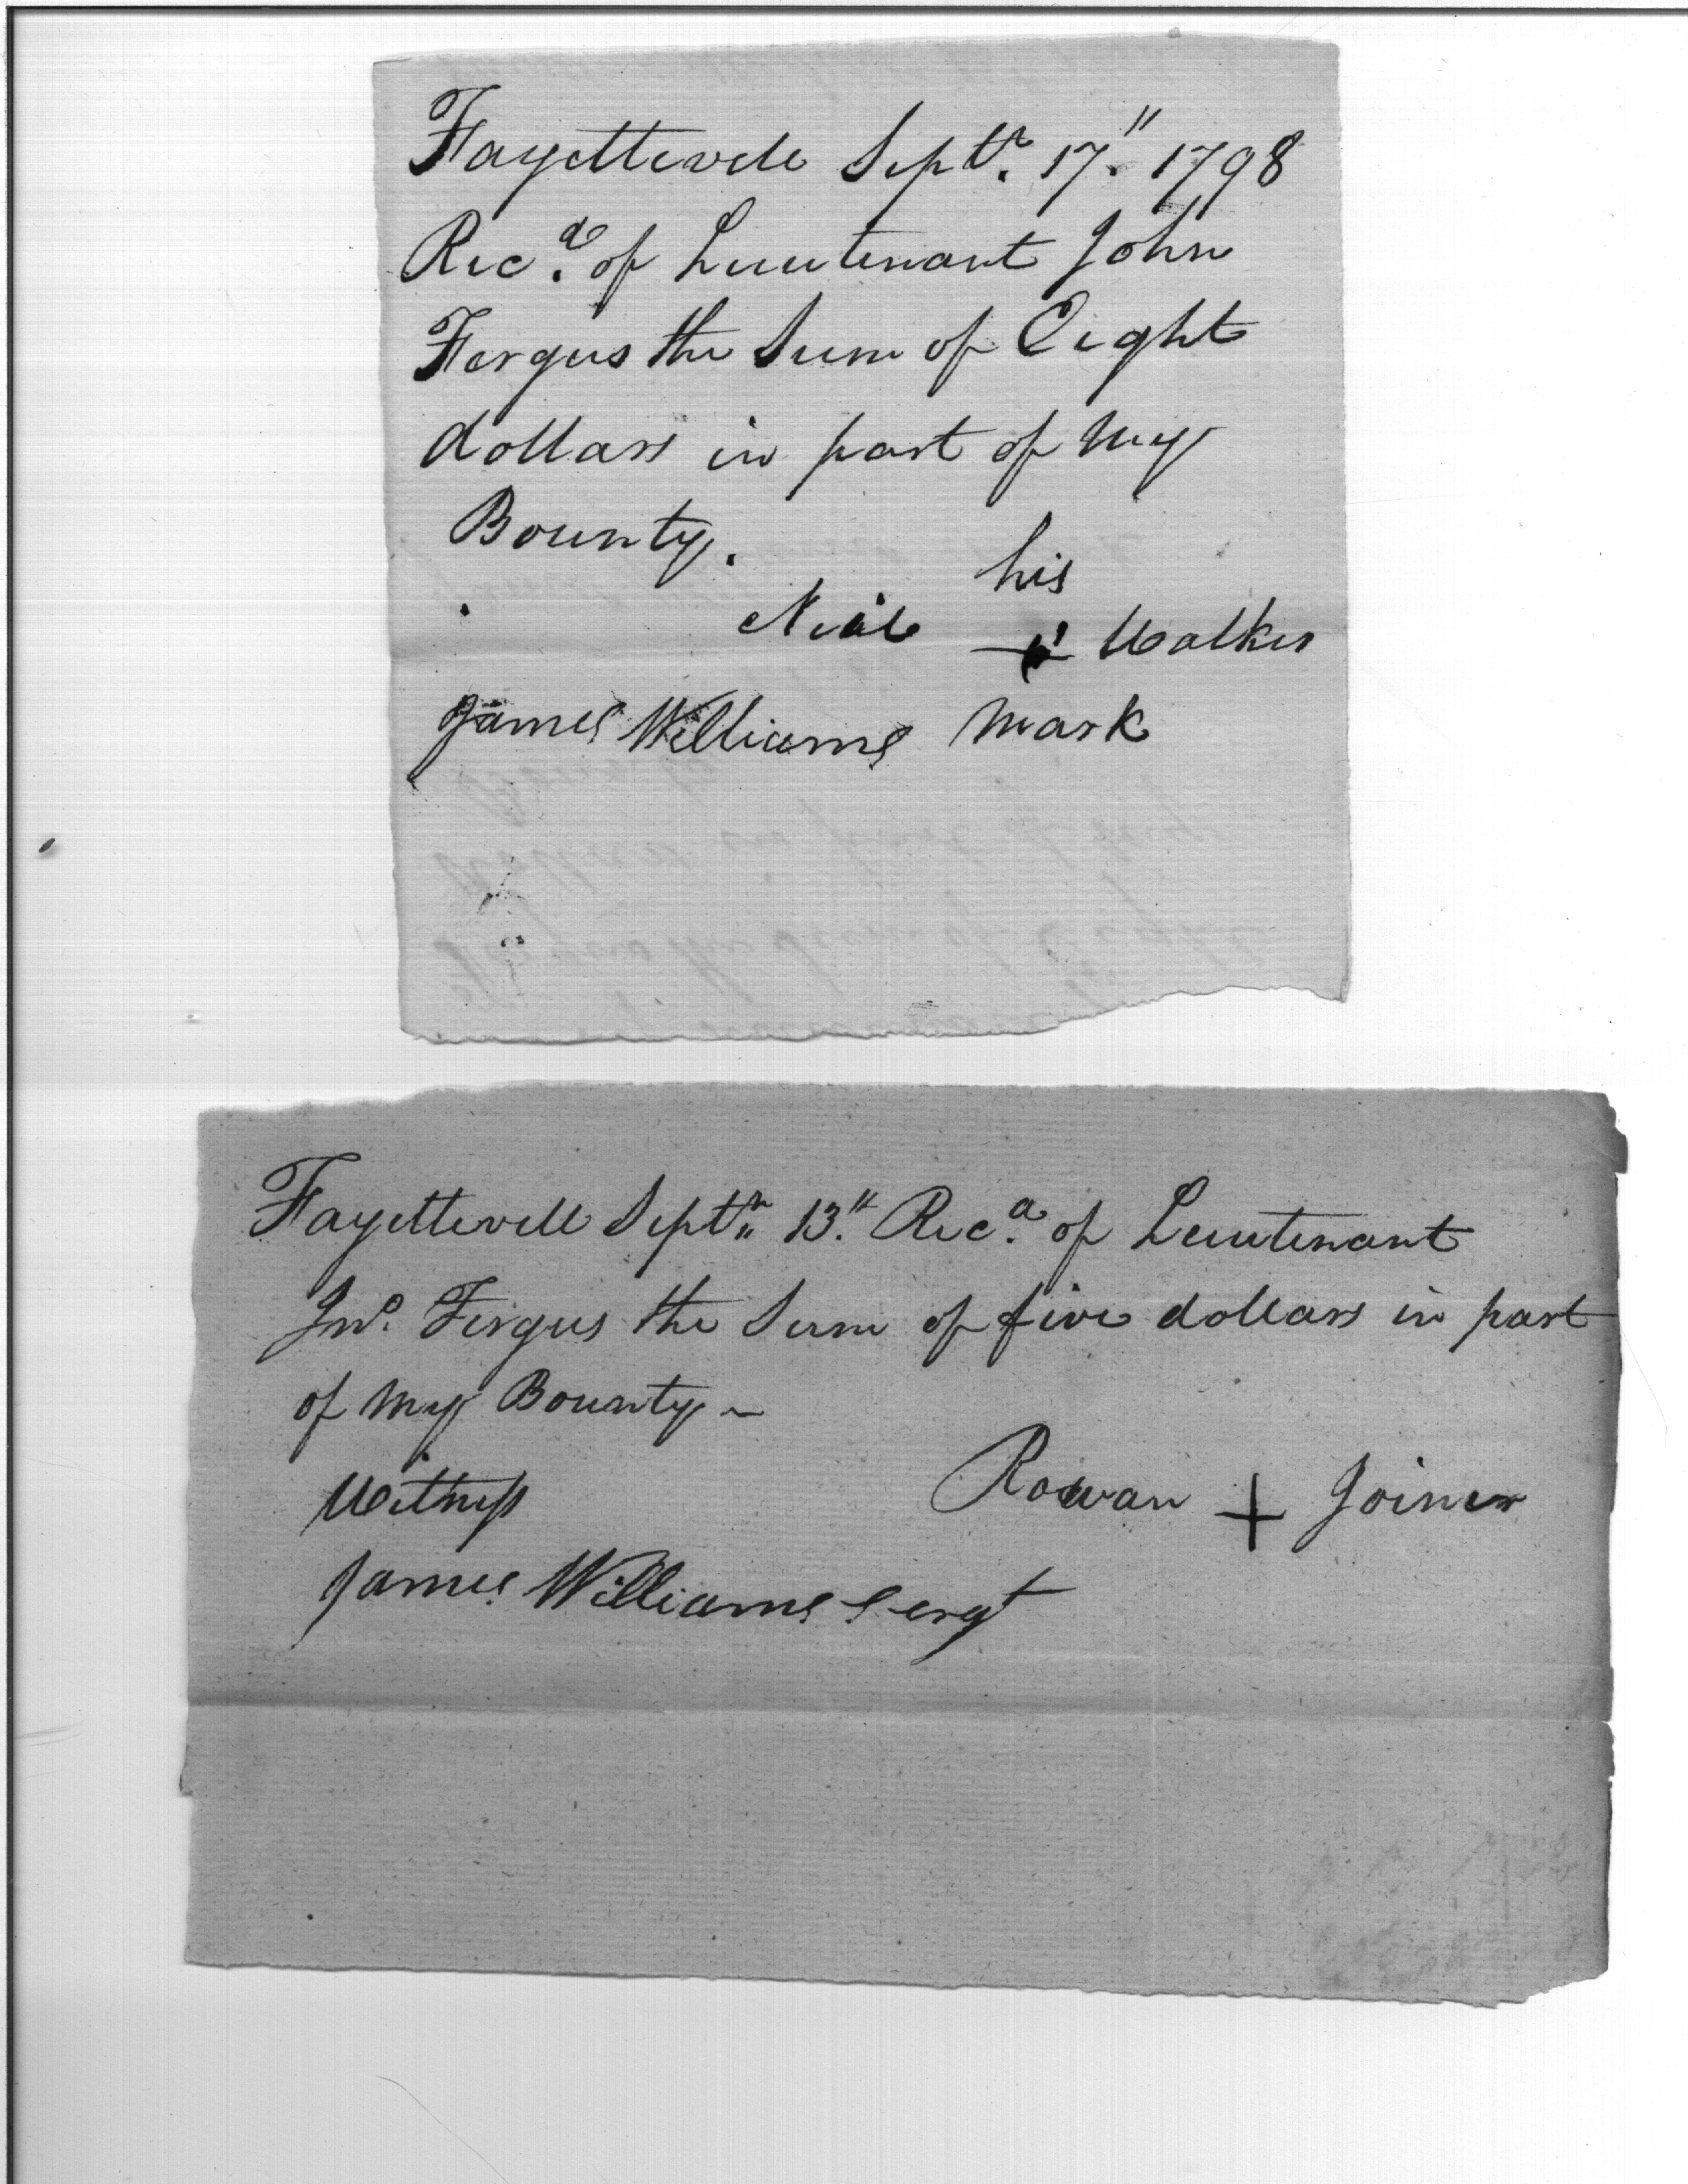 Fayetteville Septr. 17th 1798
Recd. of Lieutenant John
Fergus the Sum of Eight
dollars in part of my
Bounty.
his
Neil + Walker
James Williams mark
Fayetteville Septr. 13th. Recd. of Lieutenant
Jno. Fergus the Sum of five dollars in part
of my Bounty ~
Witness
Rowan + Joiner
James Williams Sergt